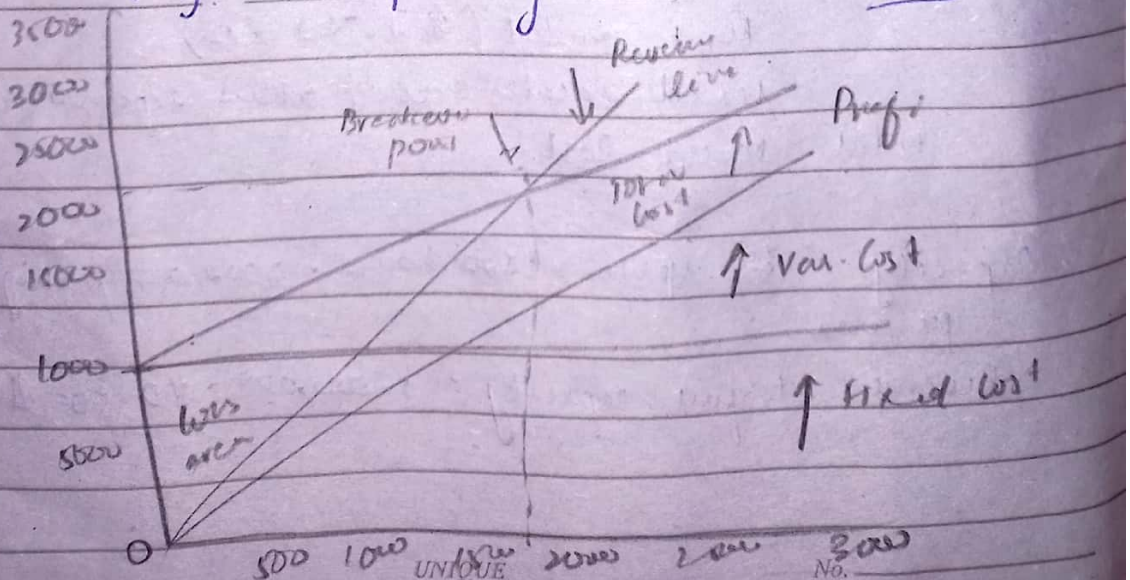 3500
3000
25000
2000
15000
1000
5000
0
Revenue
line
Breakeven
point
Profi
Total
Cost
Var. Cost
Fixed Cost
Loss
area
500 1000 1500 2000 3000
UNIQUE No.